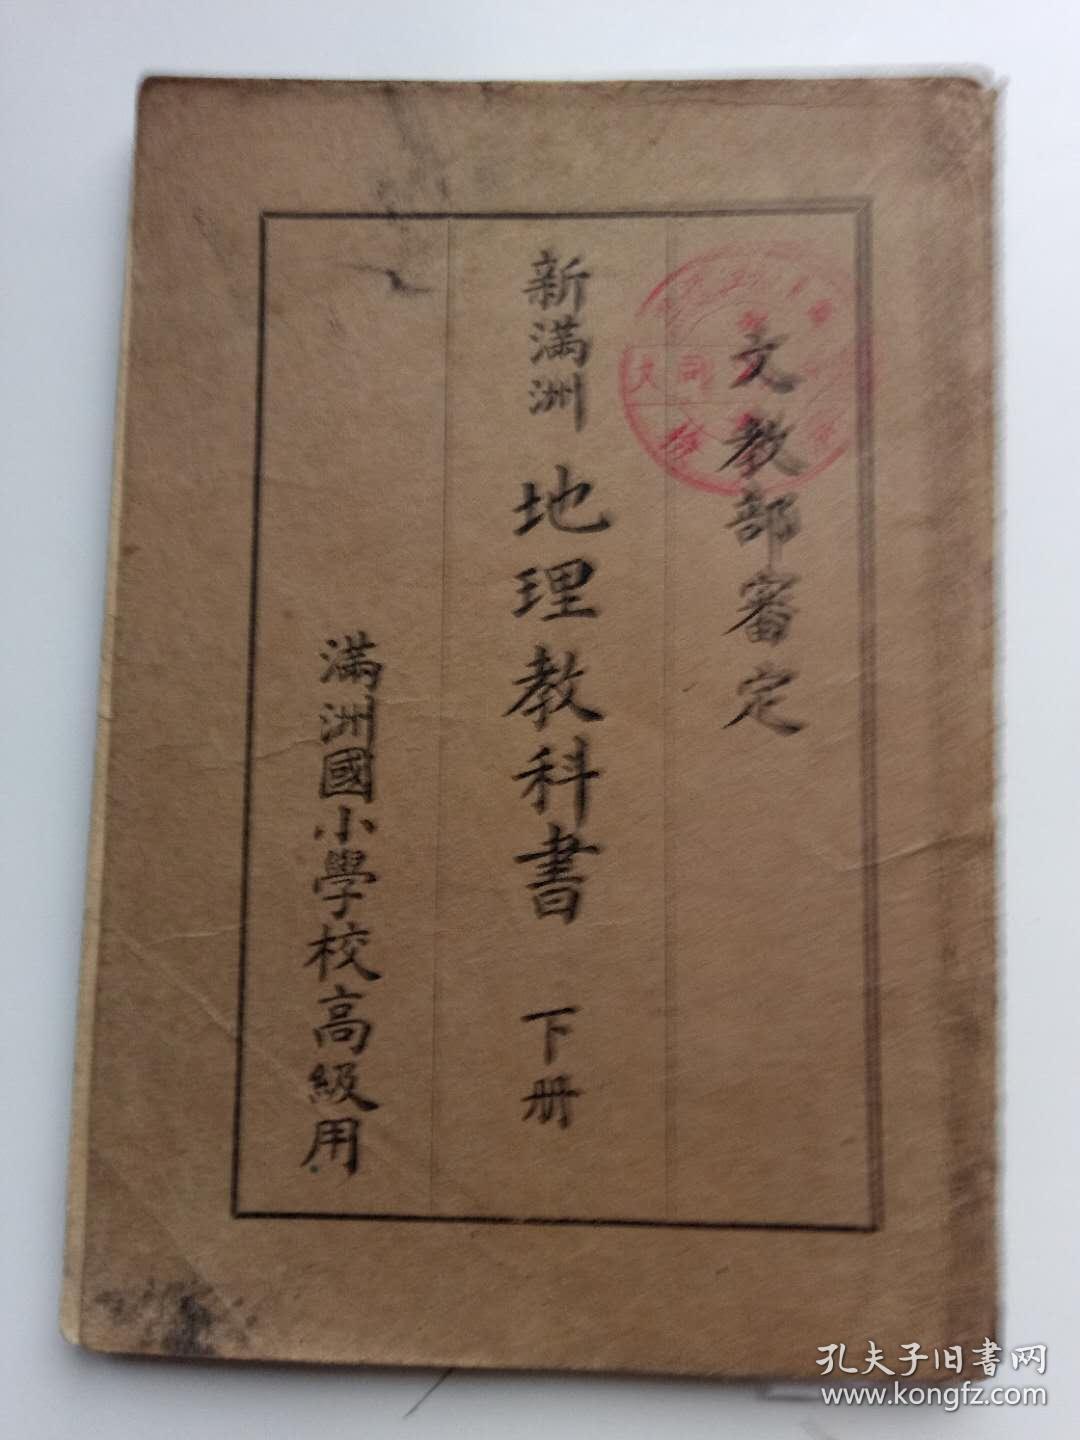 文教部審定
新滿洲 地理教科書 下册
滿洲國小學校高級用
大同
孔夫子旧書网
www.kongfz.com